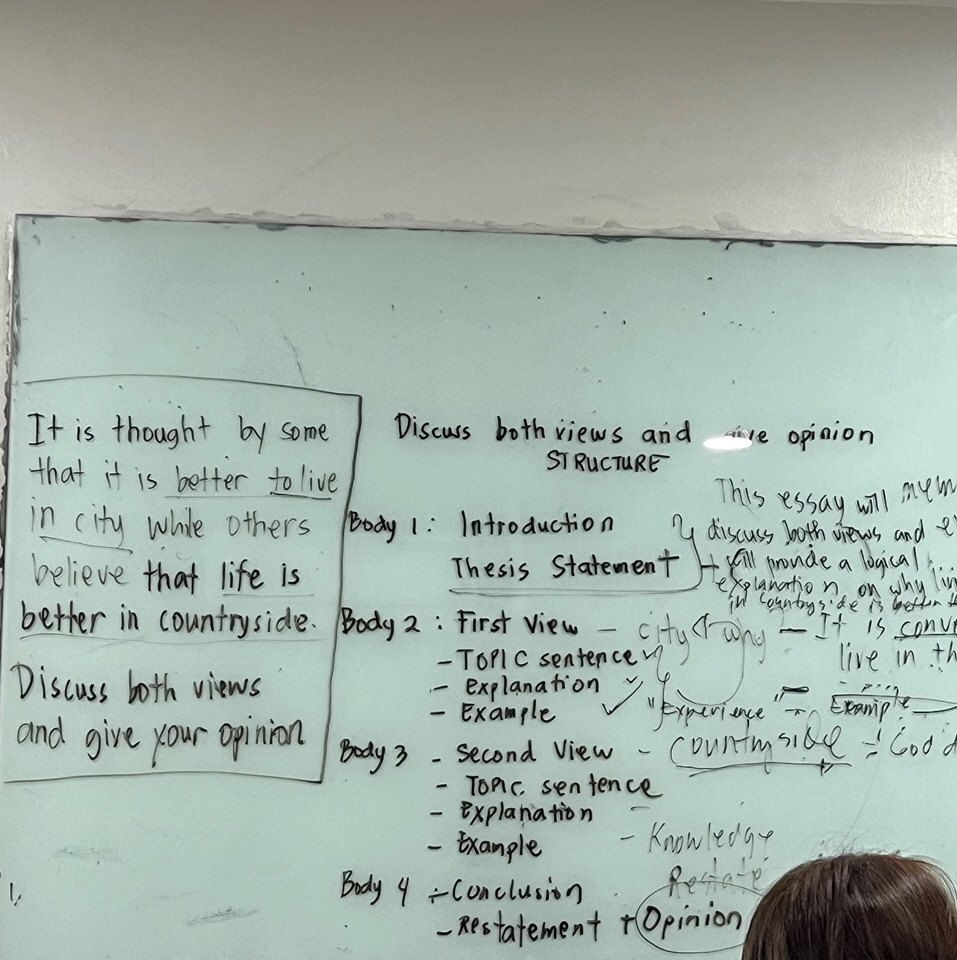 It is thought by some
that it is better to live
in city while others
believe that life is
better in countryside.
Discuss both views
and give your opinion
Discuss both views and give opinion
STRUCTURE
Body 1: Introduction
Thesis Statement
This essay will
discuss both views and
will provide a logical
explanation on why
in countryside is better
Body 2: First View - city why - It is
live in
- TOPIC sentence
- Explanation
- Example "Experience" - Example
Body 3 - Second View - countryside
- Topic sentence
- Explanation
- Example - Knowledge
Restate
Body 4 - Conclusion
- Restatement + Opinion
1.